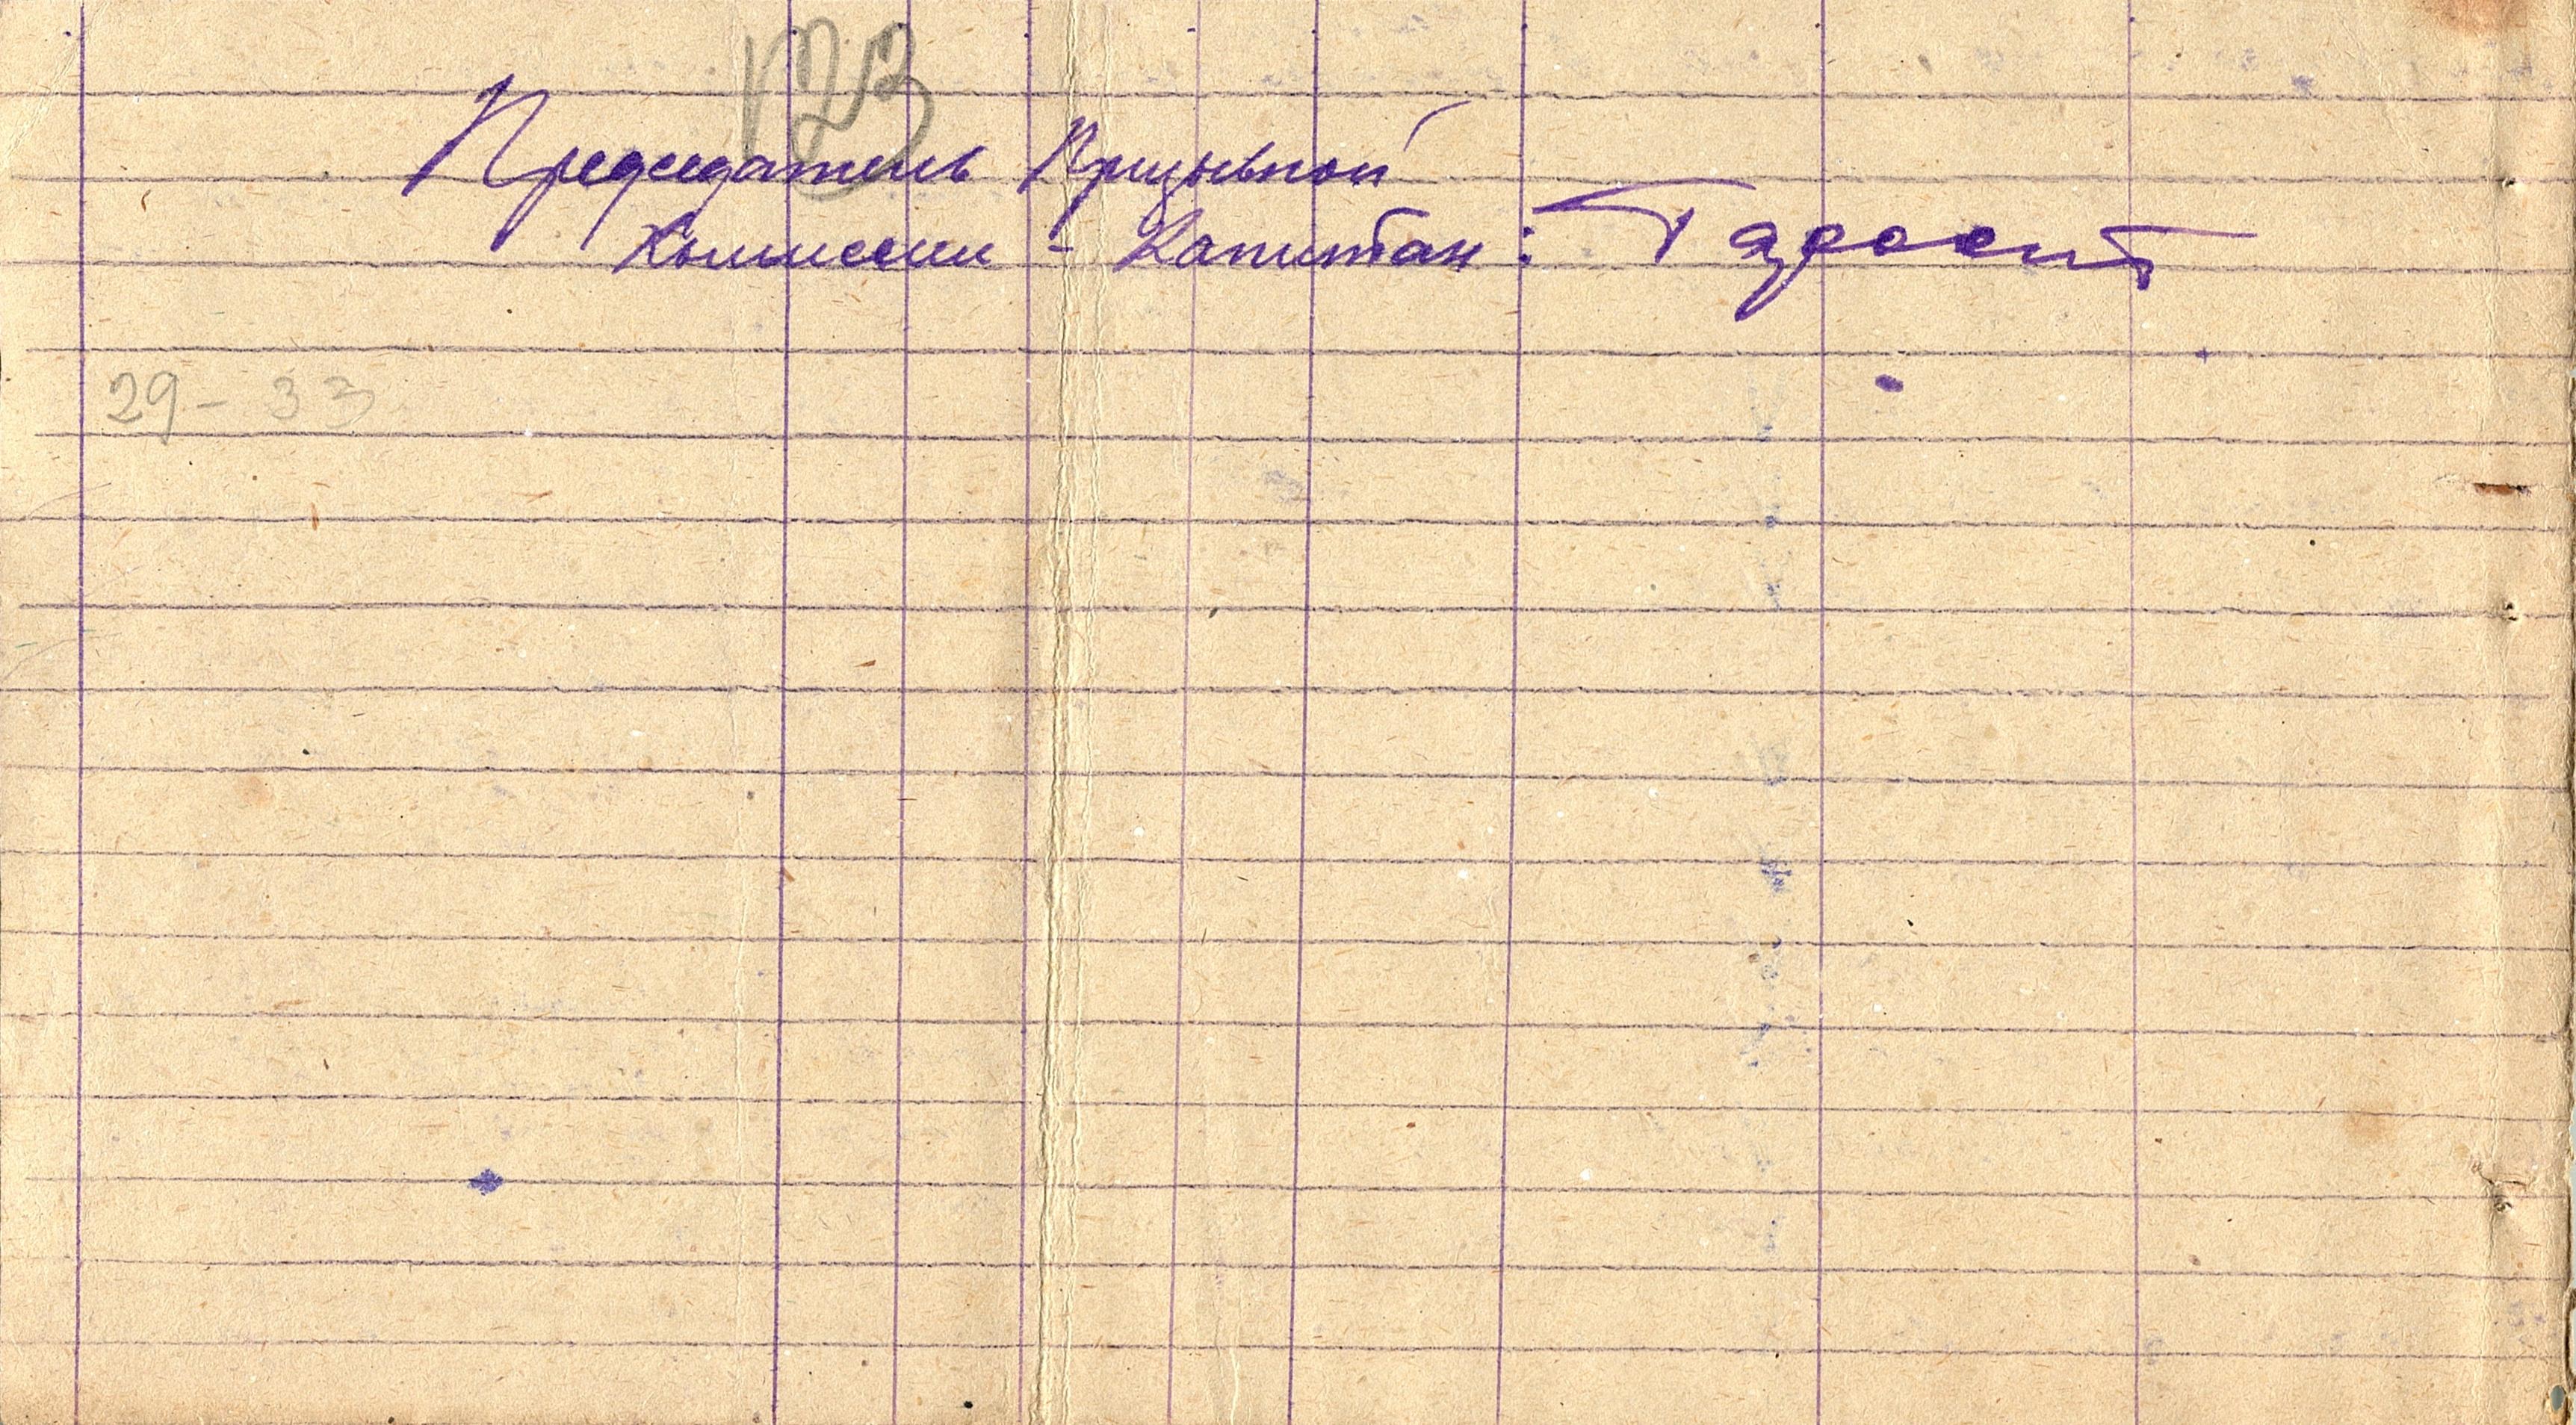 123
Председатель Призывной
Комиссии - Капитан:
29 - 33